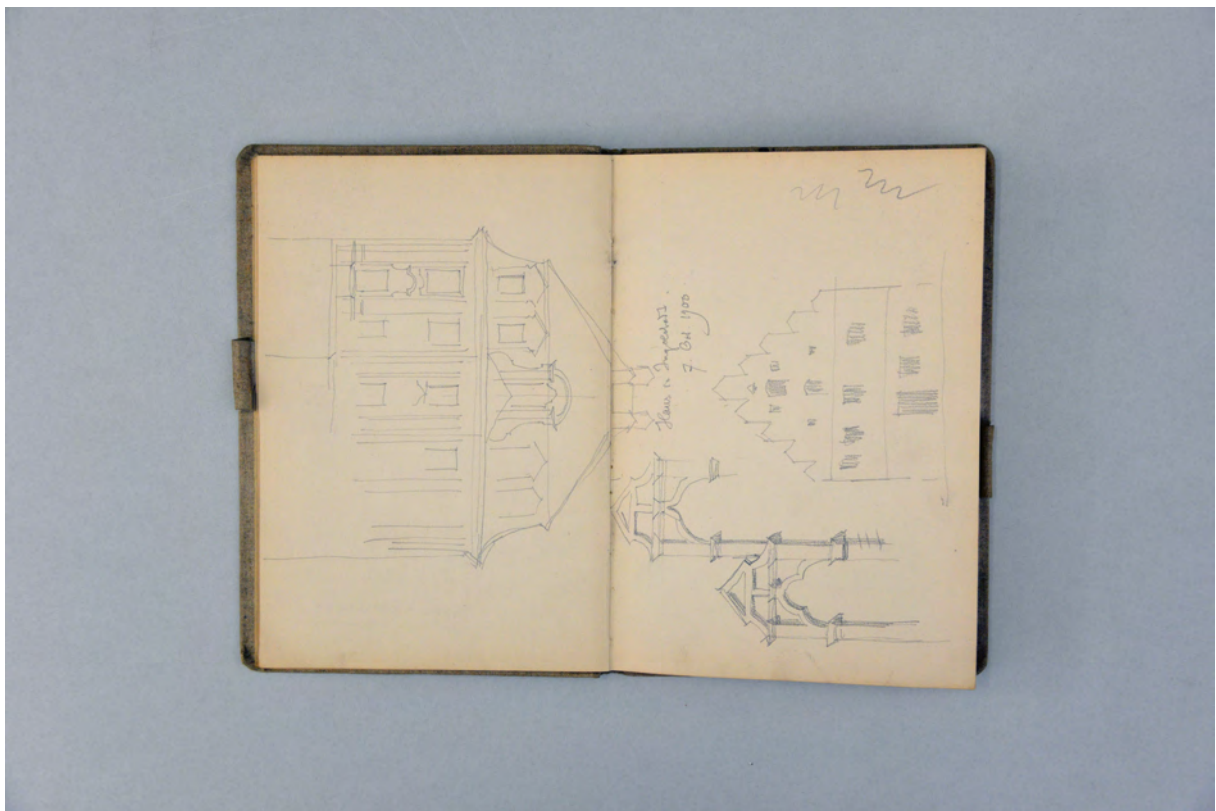 Haus in Ingolstadt.
7. Okt 1900